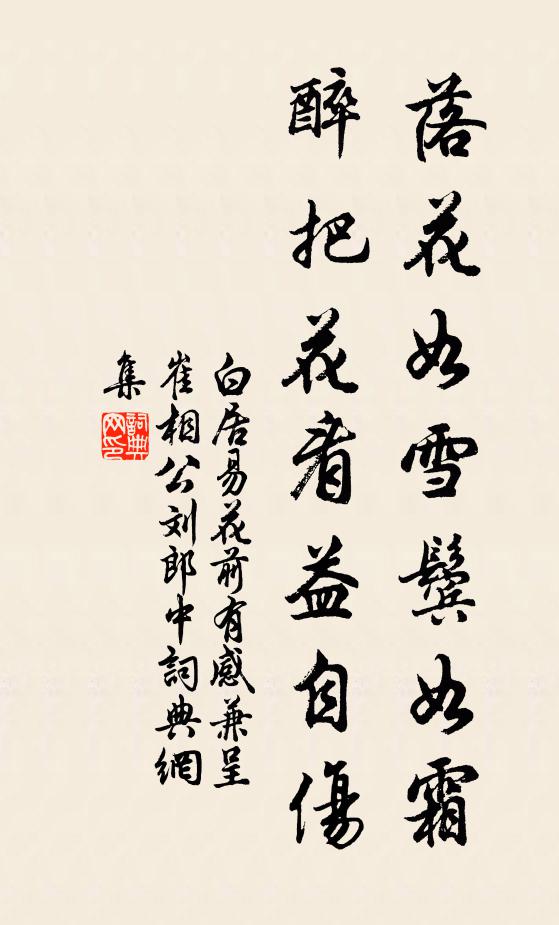 落花如雪鬢如霜
醉把花看益自傷
白居易花前有感兼呈
崔相公刘郎中詞典網
集
詞典
网印